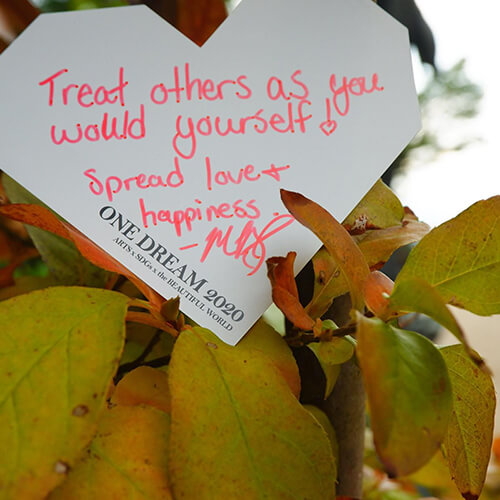 Treat others as you
would yourself!
Spread love +
happiness.
ONE DREAM 2020
ARTS x SDGs x the BEAUTIFUL WORLD